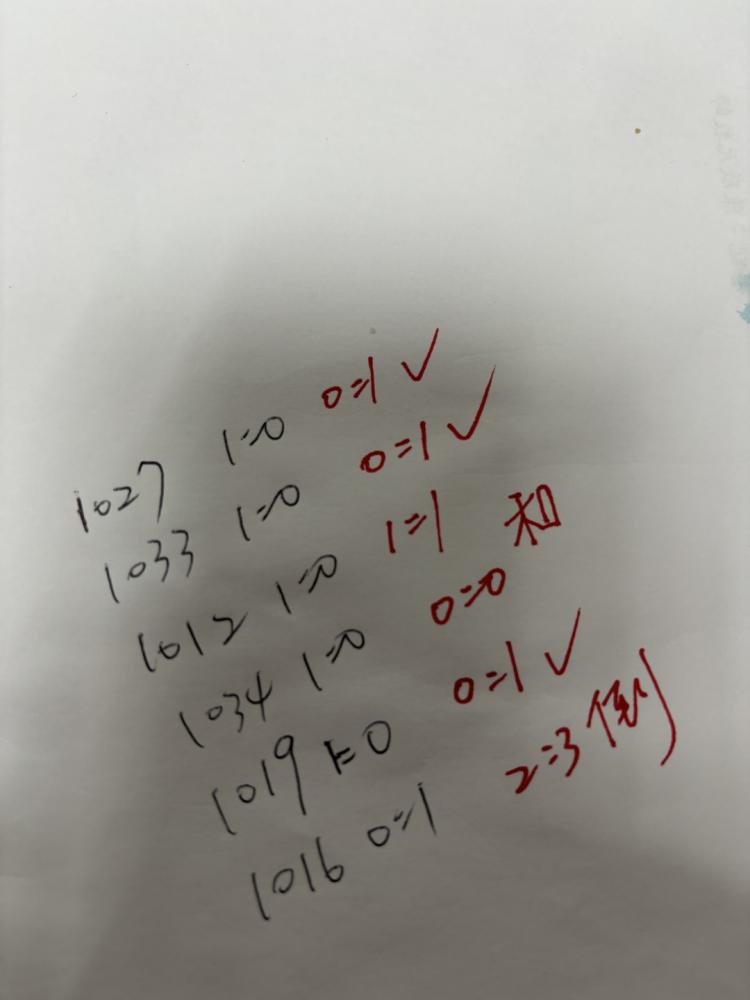 1027 1=0 0=1 ✓
1033 1=0 0=1 ✓
1012 1=0 1=1 和
1034 1=0 0=0
1019 1=0 0=1 ✓
1016 0=1 2=3 倒